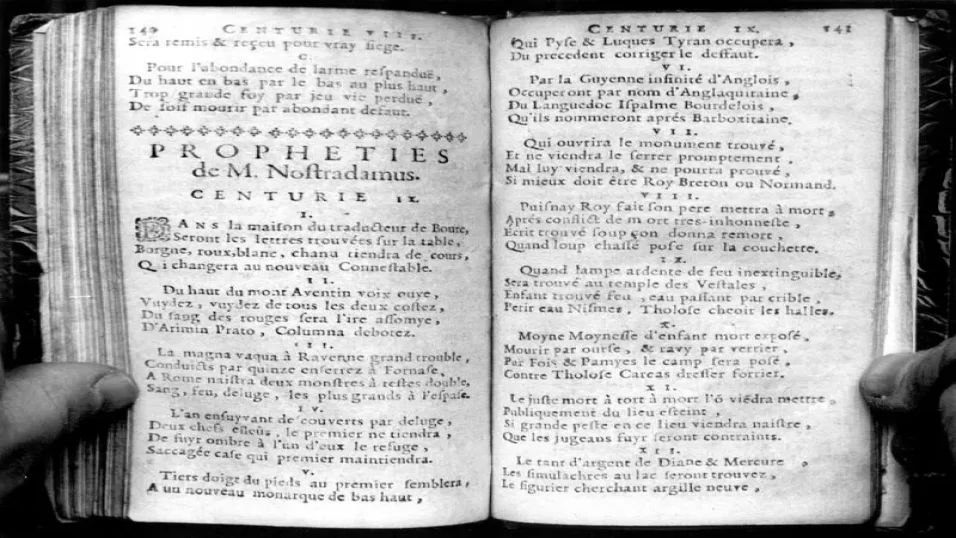 140 CENTURIE VIII.
Sera remis & reçeu pour vray siege.
C.
Pour l'abondance de larme respanduë,
Du haut en bas par le bas au plus haut,
Trop grande foy par jeu vie perduë,
De soif mourir par abondant defaut.
PROPHETIES
de M. Nostradamus.
CENTURIE IX.
I.
DANS la maison du traducteur de Boure,
Seront les lettres trouvées sur la table,
Borgne, roux, blanc, chanu tiendra de cours,
Q i changera au nouveau Connestable.
II.
Du haut du mont Aventin voix ouye,
Vuydez, vuydez de tous les deux costez,
Du sang des rouges sera l'ire assomye,
D'Arimin Prato, Columna debotez.
III.
La magna vaqua à Ravenne grand trouble,
Conduicts par quinze enserrez à Fornase,
A Rome naistra deux monstres à testes double,
Sang, feu, deluge, les plus grands à l'espase.
IV.
L'an ensuyvant descouverts par deluge,
Deux chefs esleûs, le premier ne tiendra,
De fuyr ombre à l'un d'eux le refuge,
Saccagée case qui premier maintiendra.
V.
Tiers doigt du pieds au premier semblera,
A un nouveau monarque de bas haut,
CENTURIE IX. 141
Qui Pyse & Luques Tyran occupera,
Du precedent corriger le deffaut.
VI.
Par la Guyenne infinité d'Anglois,
Occuperont par nom d'Anglaquitaine,
Du Languedoc Ispalme Bourdelois,
Qu'ils nommeront aprés Barboxitaine.
VII.
Qui ouvrira le monument trouvé,
Et ne viendra le serrer promptement.
Mal luy viendra, & ne pourra prouvé,
Si mieux doit être Roy Breton ou Normand.
VIII.
Puisnay Roy fait son pere mettra à mort,
Aprés conflict de mort tres-inhonneste,
Ecrit trouvé soupçon donna remort,
Quand loup chassé pose sur la couchette.
IX.
Quand lampe ardente de feu inextinguible,
Sera trouvé au temple des Vestales,
Enfant trouvé feu, eau passant par crible,
Perir eau Nismes, Tholose cheoir les halles.
X.
Moyne Moynesse d'enfant mort exposé,
Mourir par ourse, & ravy par verrier,
Par Fois & Pamyes le camp sera posé,
Contre Tholose Carcas dresser forrier.
XI.
Le juste mort à tort à mort l'ō viēdra mettre,
Publiquement du lieu esteint,
Si grande peste en ce lieu viendra naistre,
Que les jugeans fuyr seront contraints.
XII.
Le tant d'argent de Diane & Mercure,
Les simulachres au lac seront trouvez,
Le figurier cherchant argille neuve,